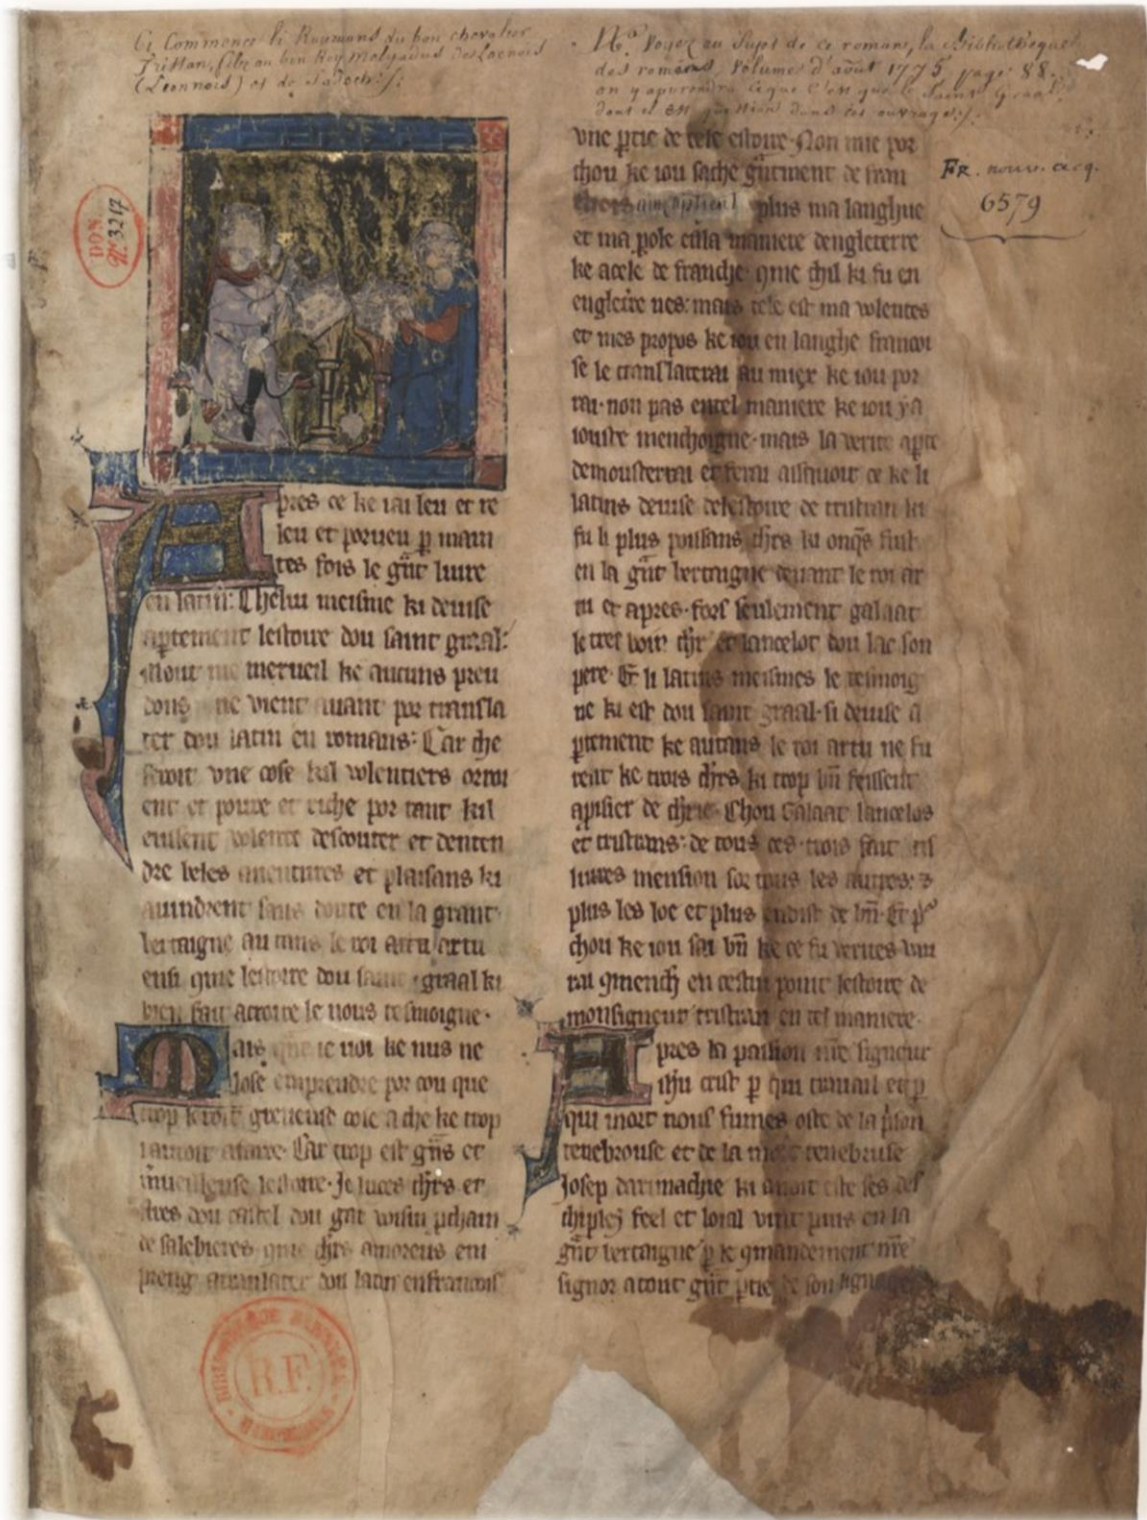 Ci Commence li Roumans du bon chevalier
Tristan, filz au bon Roy Melyadus de Loenois
(Leonnois) et de Sadoch:/:
Nᵃ Voyez au Sujet de ce roman, la Bibliotheque
des romans, Volumes d'août 1775, page 88.
on y apprendra ce que c'est que le Saint Graal,
dont il est question dans cet ouvrage:/.
FR. nouv. acq.
6579
DON
Nº 3217
Apres ce ke iai leu et re
leu et porueu p̲ main
tes fois le g̃nt liure
en latin: Chelui meisme ki deuise
aptement lestoire dou saint graal:
mout me merueil ke aucuns preu
dons ne vient auant por transla
ter dou latin en romans: Car che
seroit vne cose kil volentiers orroi
ent et poure et riche por tant kil
eussent volente descouter et denten
dre beles auentures et plaisans ki
auindrent sans doute en la grant
bertaigne au tans le roi artu artu
ensi q̃me lestoire dou saint graal ki
bien fait acroire le nous tesmoigne.
Mais que ie uoi ke nus ne
lose emprendre por cou que
trop seroit greueuse cose a che ke trop
i auroit afaire. Car trop est g̃ns et
m̃ueilleuse lestoire. Je luces ch̃rs et
sires dou castel dou gat voisin p̲chain
de salebieres q̃me ch̃rs amoreus em
preng a translater dou latin en francois
vne p̲tie de cele estoire. Non mie por
chou ke iou sache g̃nment de fran
plus ma langhue
et ma pole est a la maniere dengleterre
ke a cele de franche. 9me chil ki fu en
engleterre nes: mais tele est ma volentes
et mes propos ke iou en langhe francoi
se le translaterai au miex ke iou por
rai. non pas en tel maniere ke iou ya
iouste menchoigne. mais la verite ap̲te
demousterrai et ferai assauoir ce ke li
latins deuise de lestoire de tristan ki
fu li plus poissans ch̃rs ki onq̃s fust
en la g̃nt bertaigne deuant le roi ar
tu et apres. fors seulement galaat
le tres boin ch̃r et lancelot dou lac son
pere. Et li latins meismes le tesmoig
ne ki est dou saint graal. si deuise a
p̲tement ke au tans le roi artu ne fu
rent ke trois ch̃rs ki trop bñ feissent
a prisier de ch̃rie. Chou Galaat lancelos
et tristrans: de tous ces trois fait cis
liures mension sor tous les autres:
plus les loe et plus en dist de bñ. Et p̲
chou ke iou sai bñ ke ce fu verites vau
rai 9menchi en cestui point lestoire de
monsigneur tristran en tel maniere.
Apres la passion n̄re signeur
ih̃u crist p̲ qui trauail et p̲
qui mort nous fumes oste de la p̃son
tenebrouse et de la mort tenebruse
Iosep darimachie ki auoit este ses des
chiples feel et loial vint puis en la
g̃nt bertaigne p̲ le 9mandement n̄re
signor a tout g̃nt p̲tie de son lignage
R.F.